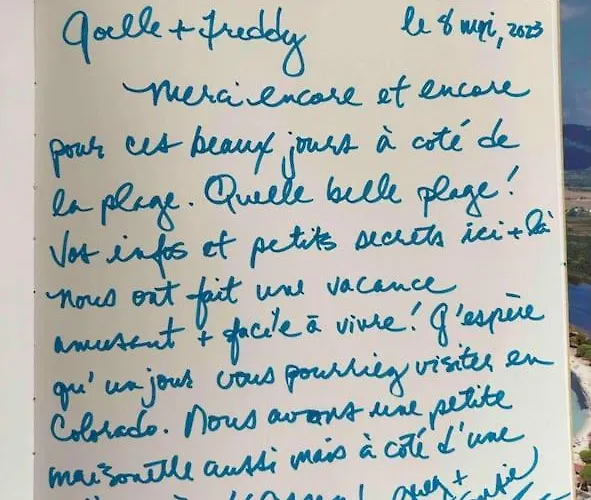 Goelle + Freddy le 8 mai, 2023
Merci encore et encore
pour ces beaux jours à coté de
la plage. Quelle belle plage!
Vos infos et petits secrets ici + là
nous ont fait une vacance
amusant + facile à vivre! J'espère
qu'un jour vous pourriez visiter en
Colorado. Nous avons une petite
maisonette aussi mais à côté d'une